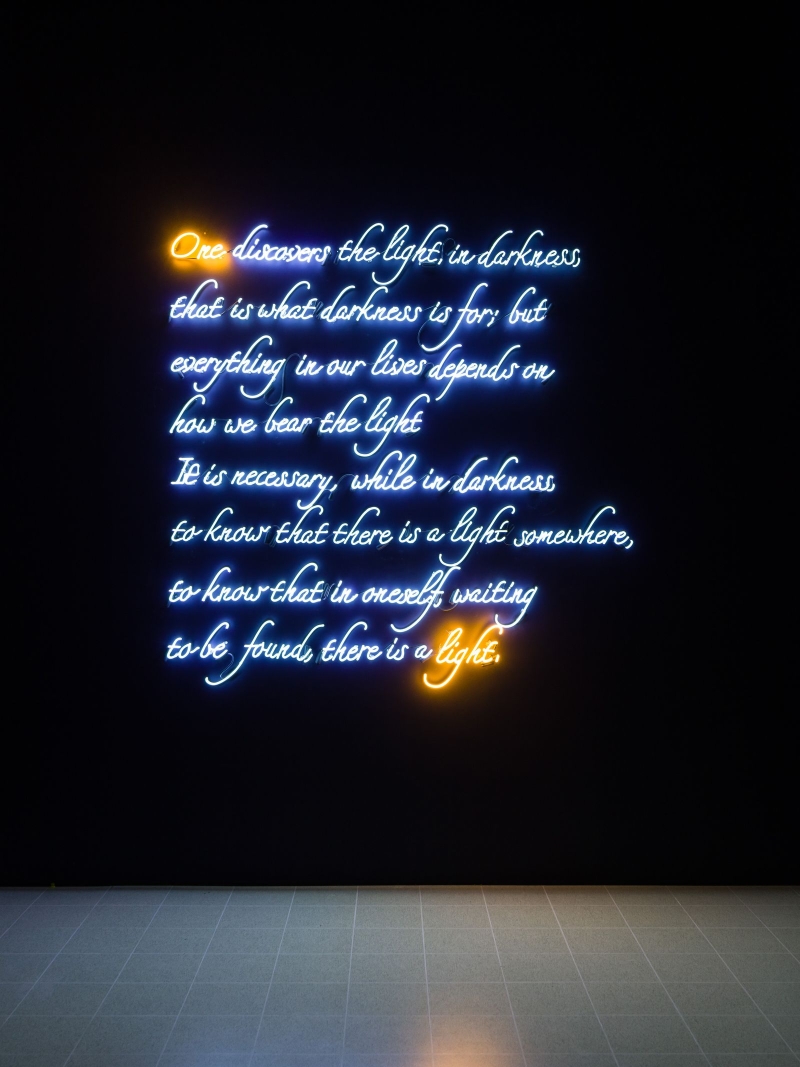 One discovers the light in darkness,
that is what darkness is for; but
everything in our lives depends on
how we bear the light
It is necessary, while in darkness,
to know that there is a light somewhere,
to know that in oneself, waiting
to be found, there is a light.